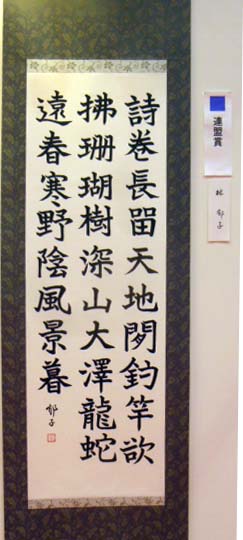 詩卷長留天地閒釣竿欲
拂珊瑚樹深山大澤龍蛇
遠春寒野陰風景暮
郁子
連盟賞
林 郁子